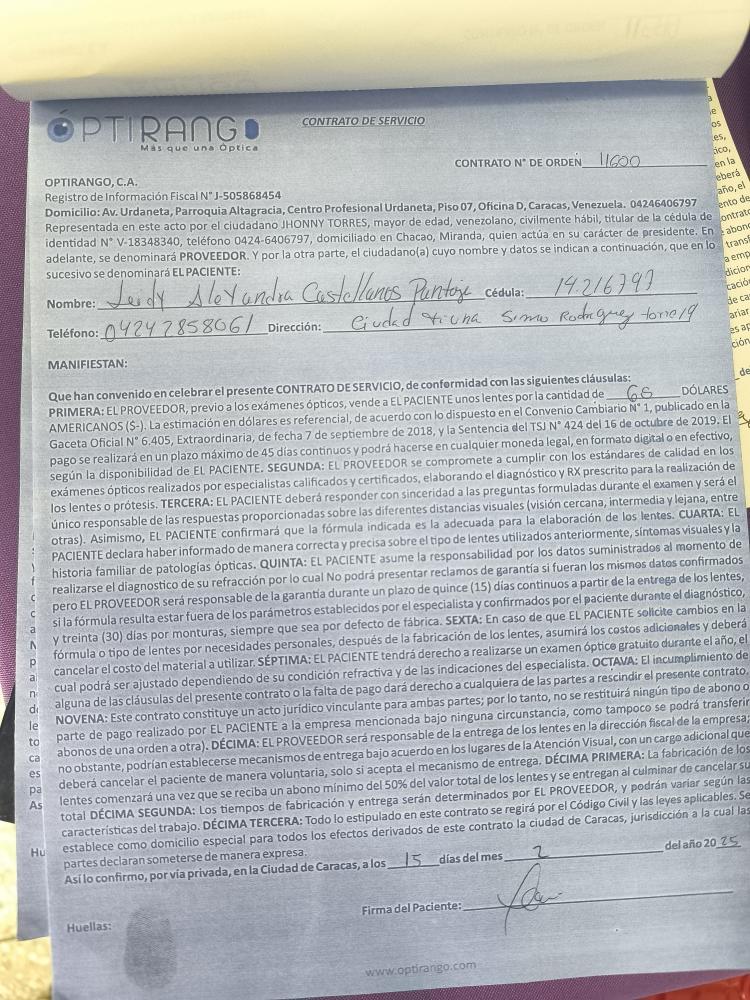 ÓPTIRANGO
Más que una Óptica
CONTRATO DE SERVICIO
CONTRATO N° DE ORDEN 11600
OPTIRANGO, C.A.
Registro de Información Fiscal N° J-505868454
Domicilio: Av. Urdaneta, Parroquia Altagracia, Centro Profesional Urdaneta, Piso 07, Oficina D, Caracas, Venezuela. 04246406797
Representada en este acto por el ciudadano JHONNY TORRES, mayor de edad, venezolano, civilmente hábil, titular de la cédula de
identidad N° V-18348340, teléfono 0424-6406797, domiciliado en Chacao, Miranda, quien actúa en su carácter de presidente. En
adelante, se denominará PROVEEDOR. Y por la otra parte, el ciudadano(a) cuyo nombre y datos se indican a continuación, que en lo
sucesivo se denominará EL PACIENTE:
Nombre: Leidy Alexandra Castellanos Cédula: 14.216797
Teléfono: 04242858061 Dirección: Ciudad Tiuna Simon Rodriguez torre 19
MANIFIESTAN:
Que han convenido en celebrar el presente CONTRATO DE SERVICIO, de conformidad con las siguientes cláusulas:
PRIMERA: EL PROVEEDOR, previo a los exámenes ópticos, vende a EL PACIENTE unos lentes por la cantidad de DÓLARES
AMERICANOS ($-). La estimación en dólares es referencial, de acuerdo con lo dispuesto en el Convenio Cambiario N° 1, publicado en la
Gaceta Oficial N° 6,405, Extraordinaria, de fecha 7 de septiembre de 2018, y la Sentencia del TSJ N° 424 del 16 de octubre de 2019. El
pago se realizará en un plazo máximo de 45 días continuos y podrá hacerse en cualquier moneda legal, en formato digital o en efectivo,
según la disponibilidad de EL PACIENTE. SEGUNDA: EL PROVEEDOR se compromete a cumplir con los estándares de calidad en los
exámenes ópticos realizados por especialistas calificados y certificados, elaborando el diagnóstico y RX prescrito para la realización de
los lentes o prótesis. TERCERA: EL PACIENTE deberá responder con sinceridad a las preguntas formuladas durante el examen y será el
único responsable de las respuestas proporcionadas sobre las diferentes distancias visuales (visión cercana, intermedia y lejana, entre
otras). Asimismo, EL PACIENTE confirmará que la fórmula indicada es la adecuada para la elaboración de los lentes. CUARTA: EL
PACIENTE declara haber informado de manera correcta y precisa sobre el tipo de lentes utilizados anteriormente, síntomas visuales y la
historia familiar de patologías ópticas. QUINTA: EL PACIENTE asume la responsabilidad por los datos suministrados al momento de
realizarse el diagnostico de su refracción por lo cual No podrá presentar reclamos de garantía si fueran los mismos datos confirmados
pero EL PROVEEDOR será responsable de la garantía durante un plazo de quince (15) días continuos a partir de la entrega de los lentes,
si la fórmula resulta estar fuera de los parámetros establecidos por el especialista y confirmados por el paciente durante el diagnóstico,
y treinta (30) días por monturas, siempre que sea por defecto de fábrica. SEXTA: En caso de que EL PACIENTE solicite cambios en la
fórmula o tipo de lentes por necesidades personales, después de la fabricación de los lentes, asumirá los costos adicionales y deberá
cancelar el costo del material a utilizar. SÉPTIMA: EL PACIENTE tendrá derecho a realizarse un examen óptico gratuito durante el año, el
cual podrá ser ajustado dependiendo de su condición refractiva y de las indicaciones del especialista. OCTAVA: El incumplimiento de
alguna de las cláusulas del presente contrato o la falta de pago dará derecho a cualquiera de las partes a rescindir el presente contrato.
NOVENA: Este contrato constituye un acto jurídico vinculante para ambas partes; por lo tanto, no se restituirá ningún tipo de abono o
parte de pago realizado por EL PACIENTE a la empresa mencionada bajo ninguna circunstancia, como tampoco se podrá transferir
abonos de una orden a otra). DÉCIMA: EL PROVEEDOR será responsable de la entrega de los lentes en la dirección fiscal de la empresa;
no obstante, podrían establecerse mecanismos de entrega bajo acuerdo en los lugares de la Atención Visual, con un cargo adicional que
deberá cancelar el paciente de manera voluntaria, solo si acepta el mecanismo de entrega. DÉCIMA PRIMERA: La fabricación de los
lentes comenzará una vez que se reciba un abono mínimo del 50% del valor total de los lentes y se entregan al culminar de cancelar su
total DÉCIMA SEGUNDA: Los tiempos de fabricación y entrega serán determinados por EL PROVEEDOR, y podrán variar según las
características del trabajo. DÉCIMA TERCERA: Todo lo estipulado en este contrato se regirá por el Código Civil y las leyes aplicables. Se
establece como domicilio especial para todos los efectos derivados de este contrato la ciudad de Caracas, jurisdicción a la cual las
partes declaran someterse de manera expresa.
Así lo confirmo, por vía privada, en la Ciudad de Caracas, a los 15 días del mes 2 del año 2025
Firma del Paciente:
Huellas:
www.optirango.com